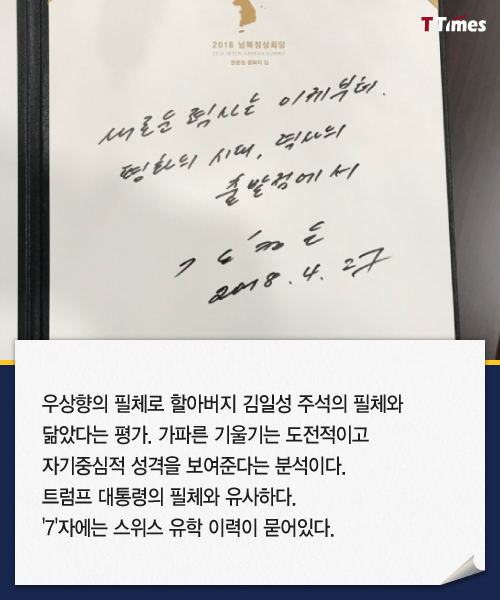 TTimes
2018 남북정상회담
2018 INTER-KOREAN SUMMIT
판문점 평화의 집
새로운 력사는 이제부터.
평화의 시대, 력사의
출발점에서
김정은
2018. 4. 27
우상향의 필체로 할아버지 김일성 주석의 필체와
닮았다는 평가. 가파른 기울기는 도전적이고
자기중심적 성격을 보여준다는 분석이다.
트럼프 대통령의 필체와 유사하다.
'7'자에는 스위스 유학 이력이 묻어있다.